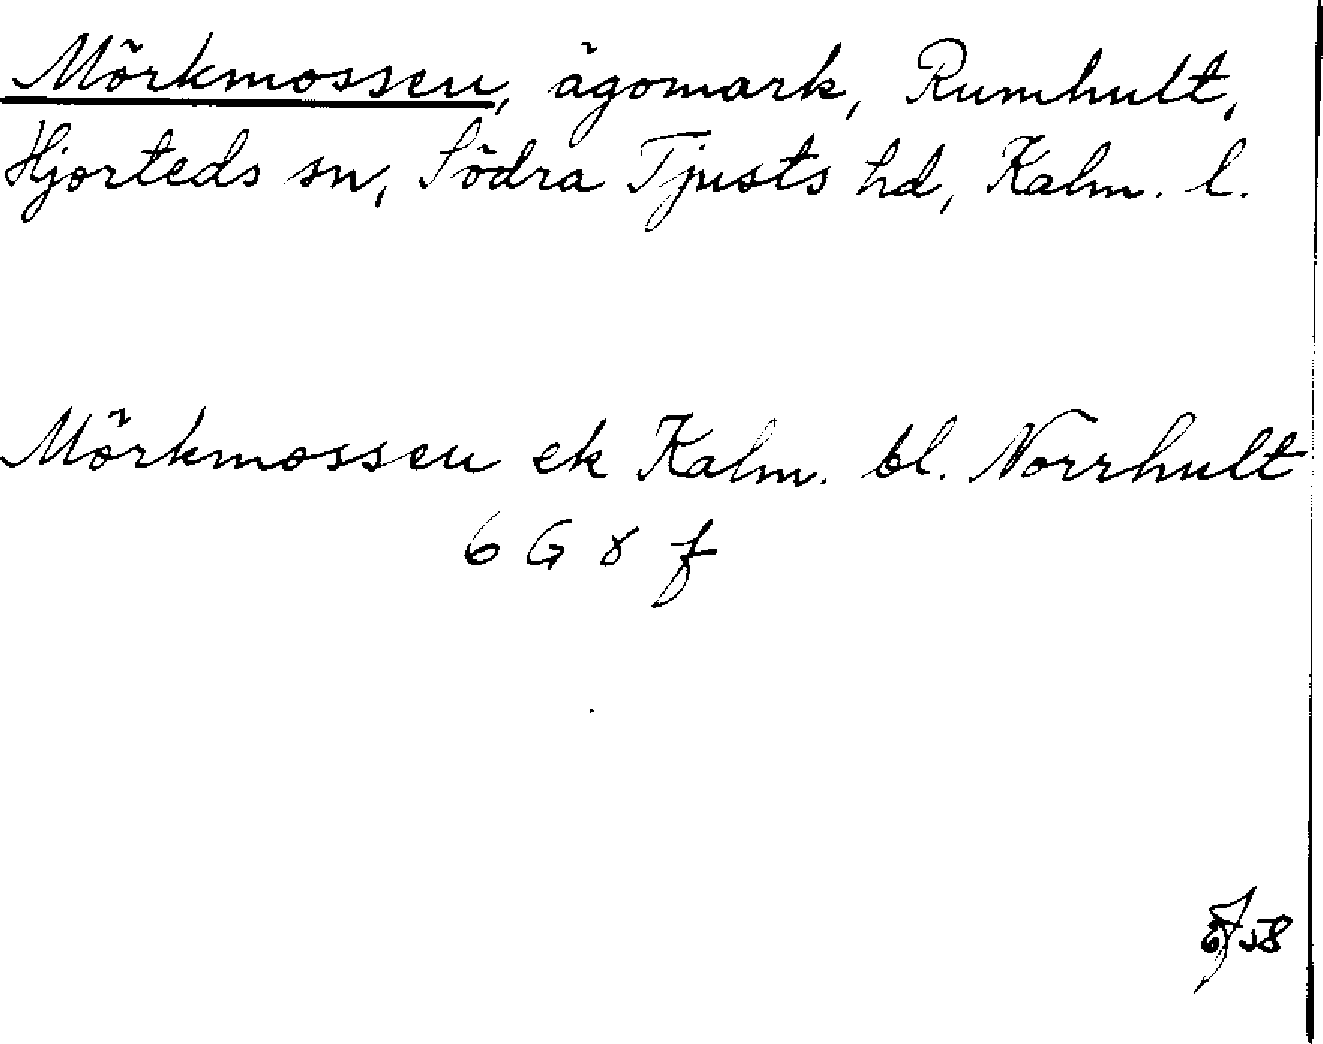 Mörkmossen, ägomark, Rumhult,
Hjorteds sn, Södra Tjusts hd, Kalm. l.
Mörkmossen ek Kalm. bl. Norrhult
6 G 8 f
58